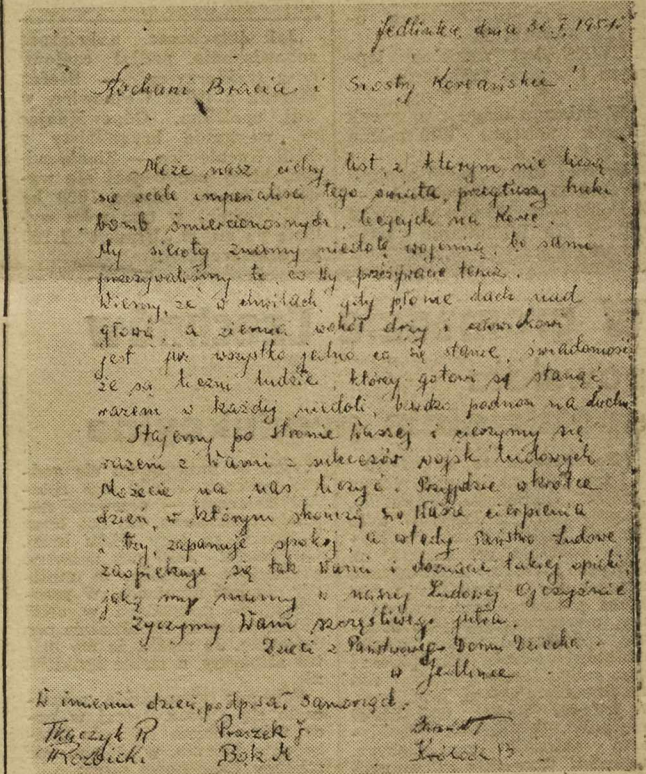 Jedlinka, dnia 30.I.1951r
Kochani Bracia i Siostry Koreańskie!
Może nasz cichy list, z którym nie liczą
się wcale imperialiści tego świata, przegłuszy huki
bomb śmiercionośnych, lecących na Koreę.
My sieroty znamy niedolę wojenną, bo sami
przeżywaliśmy to, co Wy przeżywacie teraz.
Wiemy, że w chwilach, gdy płonie dach nad
głową, a ziemia wokół drży i człowiekowi
jest już wszystko jedno co się stanie, świadomość
że są liczni ludzie, którzy gotowi są stanąć
razem w każdej niedoli, bardzo podnosi na duchu
Stajemy po stronie Waszej i cieszymy się
razem z Wami z sukcesów wojsk ludowych.
Możecie na nas liczyć. Przyjdzie wkrótce
dzień, w którym skończą się Wasze cierpienia
i łzy, zapanuje spokój, a wtedy Państwo Ludowe
zaopiekuje się tak Wami i doznacie takiej opieki,
jaką my mamy w naszej Ludowej Ojczyźnie
Życzymy Wam szczęśliwego jutra.
Dzieci z Państwowego Domu Dziecka
w Jedlince
W imieniu dzieci, podpisał samorząd:
Tkaczyk R Praszek J.
Bąk M Królak B.